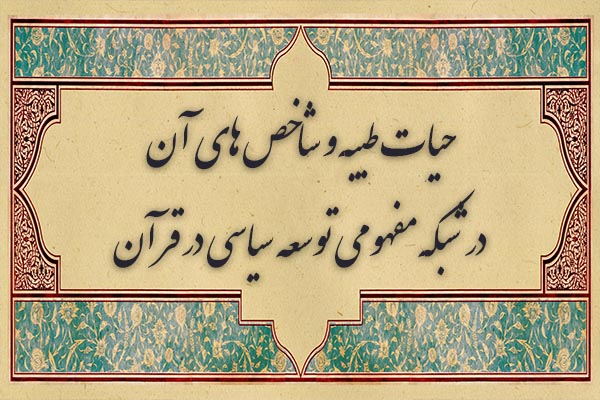 حیات طیبه و شاخص های آن
در شبکه مفهومی توسعه سیاسی در قرآن